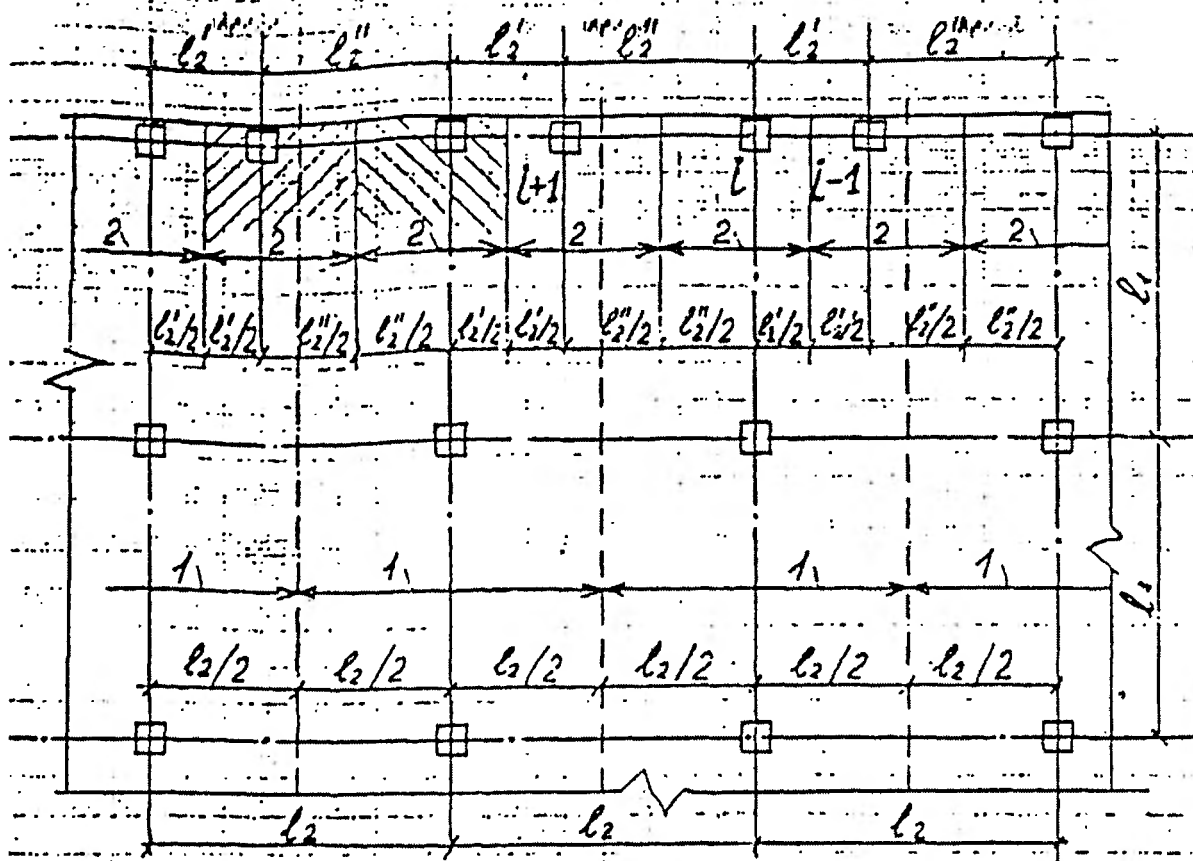 l₂' l₂" l₂' l₂" l₂' l₂"
i+1 i i-1
2 2 2 2 2 2 2
l₁
l₂'/2 l₂'/2 l₂"/2 l₂"/2 l₂'/2 l₂'/2 l₂"/2 l₂"/2 l₂'/2 l₂'/2 l₂"/2 l₂"/2
1 1 1 1
l₁
l₂/2 l₂/2 l₂/2 l₂/2 l₂/2 l₂/2
l₂ l₂ l₂